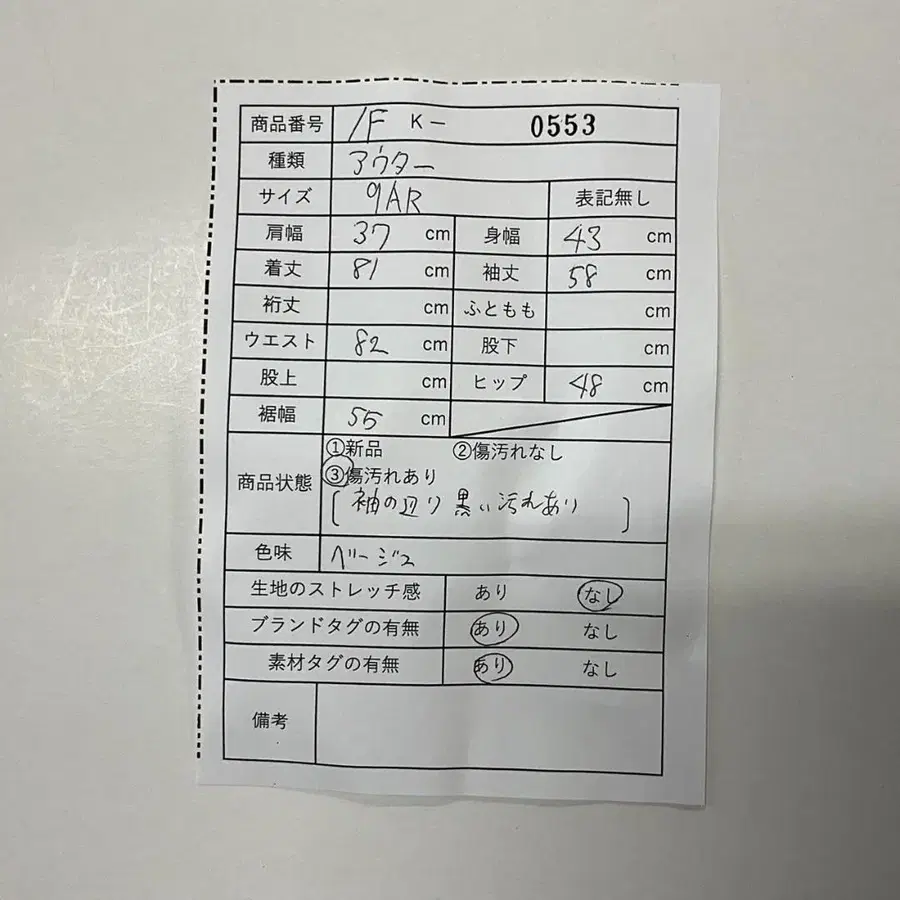 商品番号 1F K- 0553
種類 アウター
サイズ 9AR 表記無し
肩幅 37 cm 身幅 43 cm
着丈 81 cm 袖丈 58 cm
裄丈 cm ふともも cm
ウエスト 82 cm 股下 cm
股上 cm ヒップ 48 cm
裾幅 55 cm
①新品 ②傷汚れなし
商品状態 ③傷汚れあり
[袖の辺り 黒い汚れあり]
色味 ベージュ
生地のストレッチ感 あり なし
ブランドタグの有無 あり なし
素材タグの有無 あり なし
備考